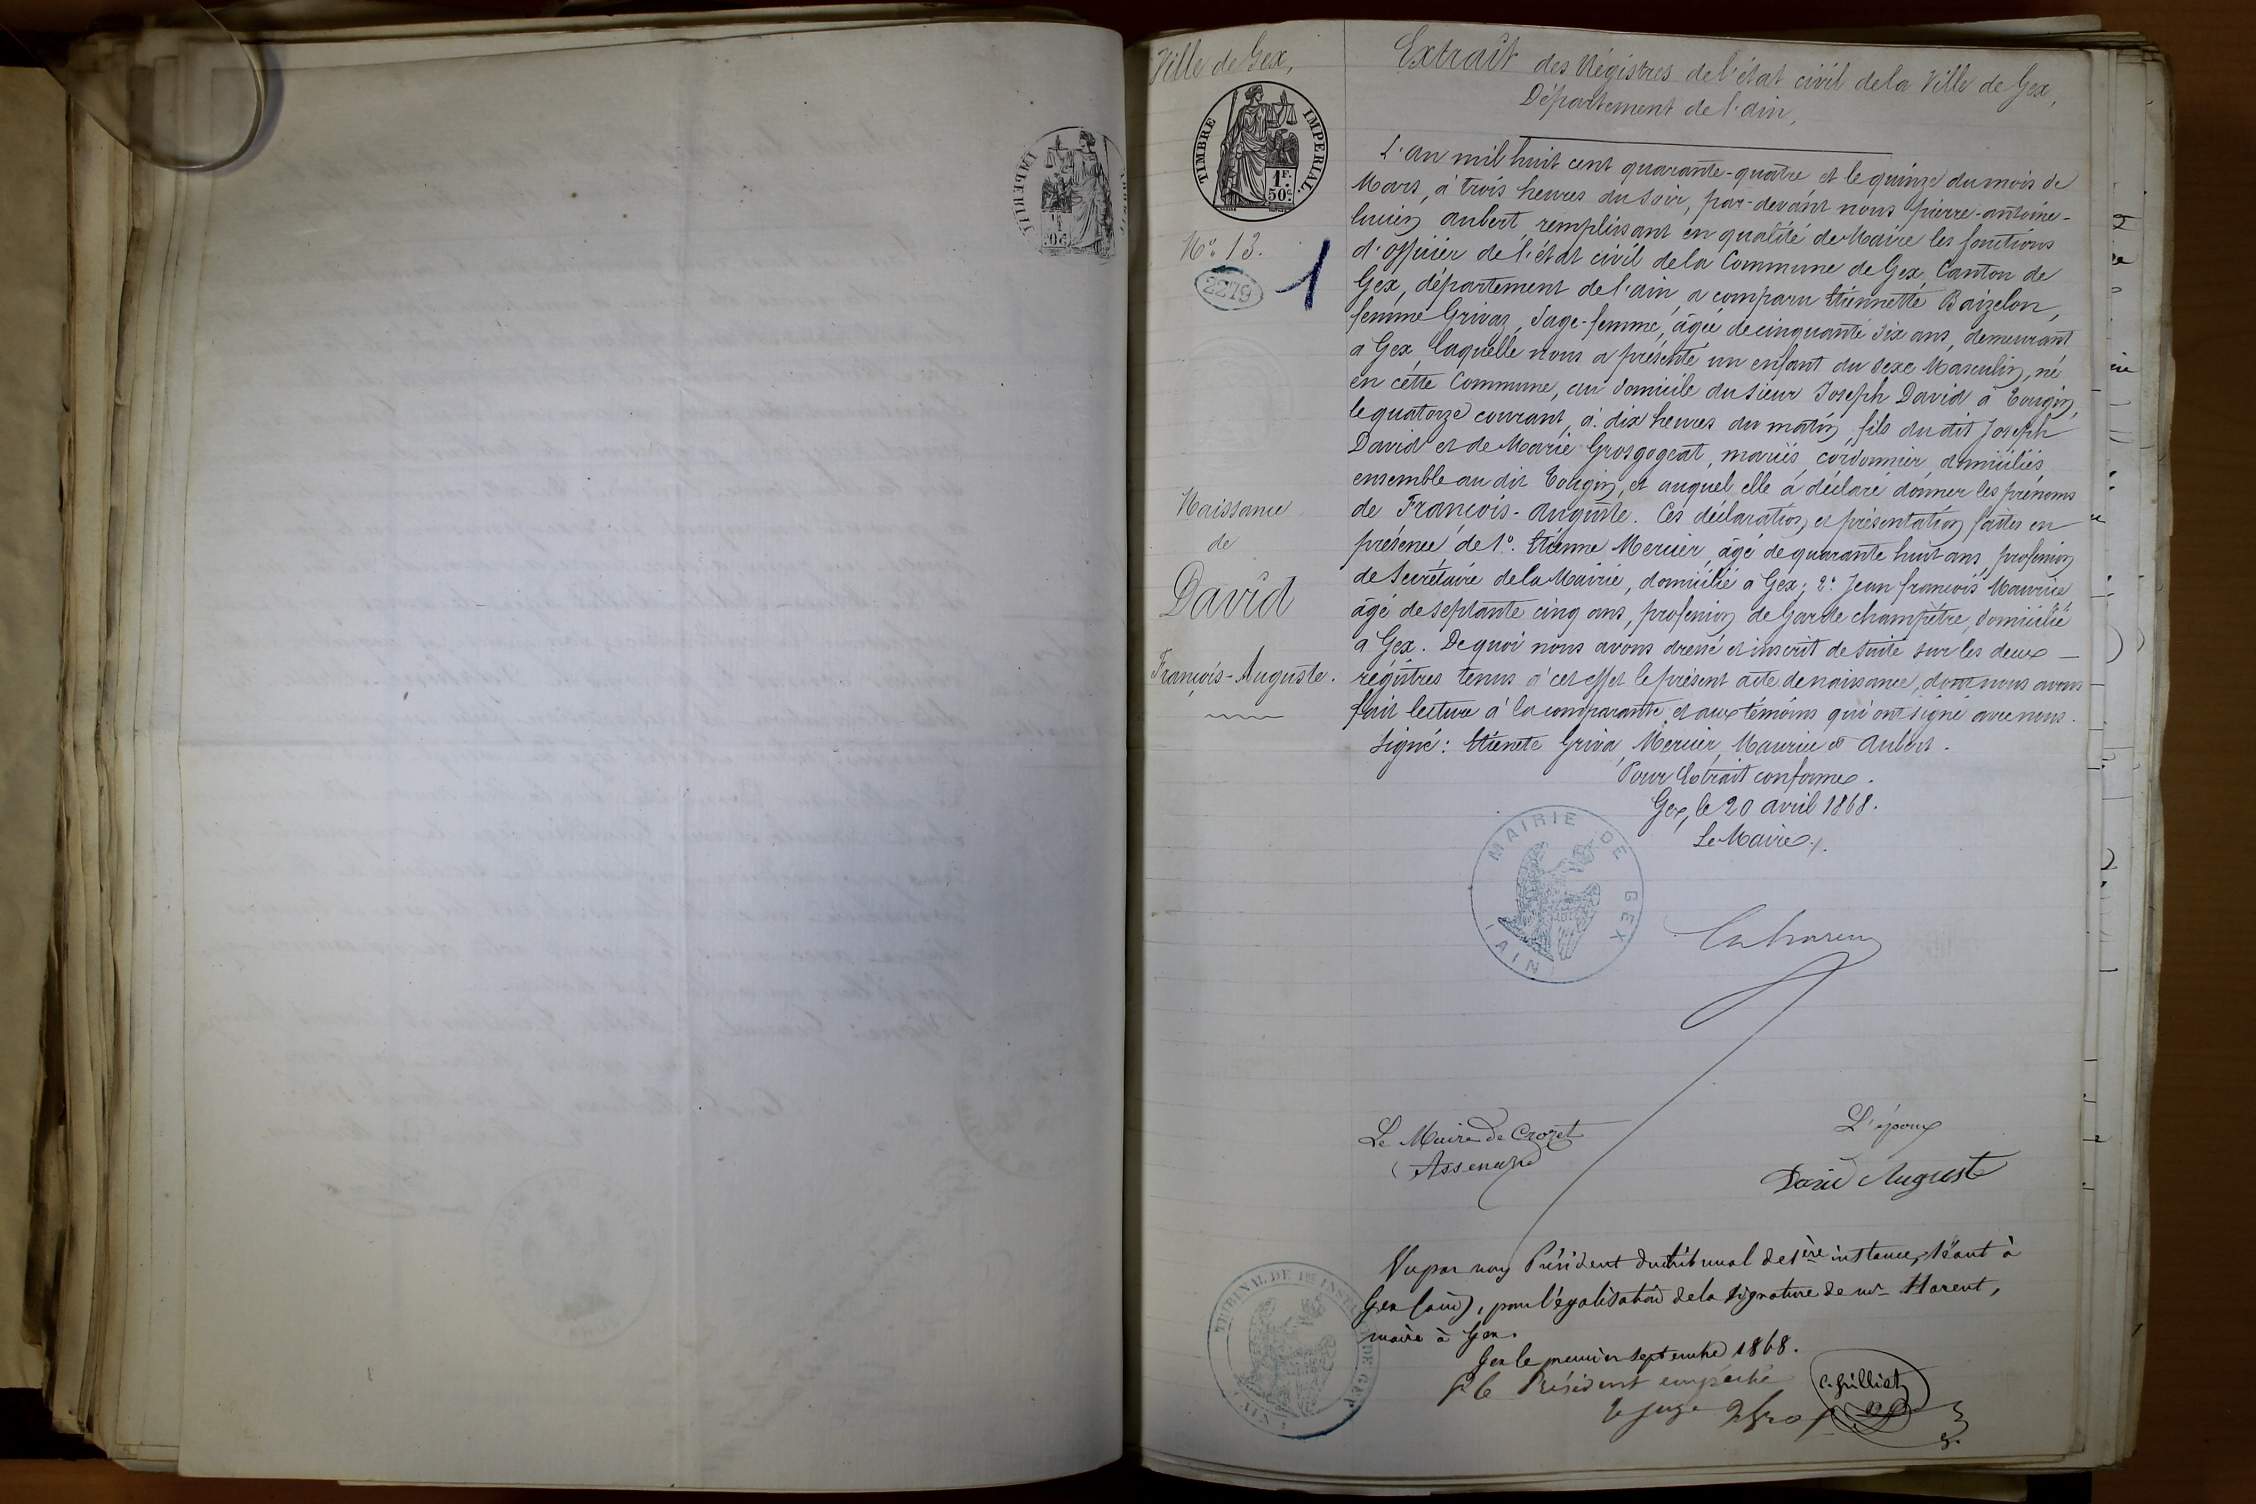 Ville de Gex,
TIMBRE IMPERIAL.
1F.
50c.
No. 13.
2279
1
Naissance
de
David
François-Auguste.
Extrait des Régistres de l'état civil de la Ville de Gex,
Département de l'ain,
L'an mil huit cent quarante-quatre et le quinze du mois de
Mars, à trois heures du soir, par-devant nous pierre-antoine-
lucien aubert remplissant en qualité de Maire les fonctions
d'officier de l'état civil de la Commune de Gex, Canton de
Gex, département de l'ain, a comparu Etiennette Baizelon,
femme Grivaz, Sage-femme, âgée de cinquante six ans, demeurant
a Gex, laquelle nous a présenté un enfant du sexe Masculin, né
en cette Commune, au domicile du sieur Joseph David à Tougin,
le quatorze courant, à dix heures du matin, fils du dit Joseph
David et de Marie Grosgogeat, mariés, cordonnier, domiciliés
ensemble au dit Tougin, et auquel elle a déclaré donner les prénoms
de François-auguste. Ces déclaration et présentation faites en
présence de 1o. Etienne Mercier, âgé de quarante huit ans, profession
de Secrétaire de la Mairie, domicilié a Gex; 2o. Jean françois Maurice
âgé de septante cinq ans, profession de Garde champêtre, domicilié
a Gex. De quoi nous avons dressé et inscrit de suite sur les deux —
régistres tenus à cet effet le présent acte de naissance, dont nous avons
fait lecture à la comparante, et aux témoins qui ont signé avec nous.
Signé: Etienete Griva, Mercier, Maurice et Aubert.
Pour Extrait conforme.
Gex, le 20 avril 1868.
Le Maire,
MAIRIE DE GEX
(AIN)
Le Maire de Crozet
L'époux
David August
Vu par nous Président du tribunal de 1ère instance, séant à
Gex (ain), pour légalisation de la signature de mr. Harent,
maire à Gex.
Gex le premier septembre 1868.
Pr le Président empêché
le juge
TRIBUNAL DE 1re INSTANCE DE GEX
(AIN)